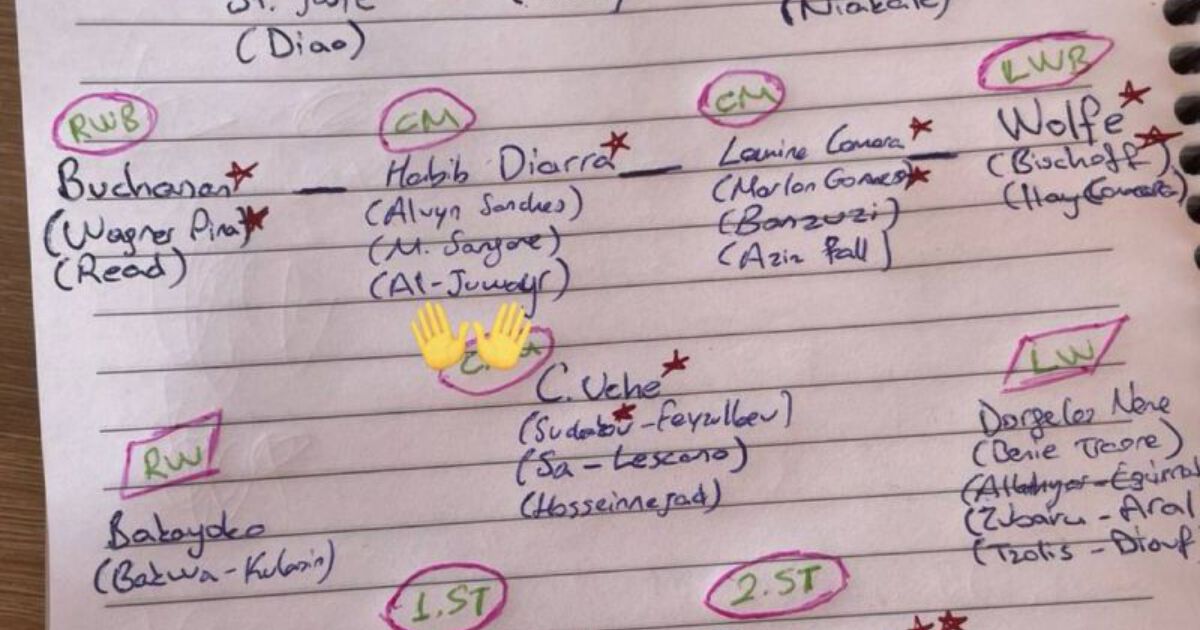 (Diao)
RWB
CM
CM
LWB
Buchanan
Habib Diarra
Lamine Camara
Wolfe
(Wagner Pina)
(Alvyn Sanches)
(Marlon Gomes)
(Bischoff)
(Read)
(M. Sangare)
(Banzuzi)
(Hay Camara)
(Al-Juwayr)
(Aziz Fall)
C. Uche
LW
(Sudakov - Feyzullaev)
Dorgeles Nene
RW
(Sa - Lescano)
(Benie Traore)
(Hosseinnejad)
Bakayoko
(Zubaru - Aral
(Bakwa - Kulazin)
(Tzolis - Diouf
1.ST
2.ST